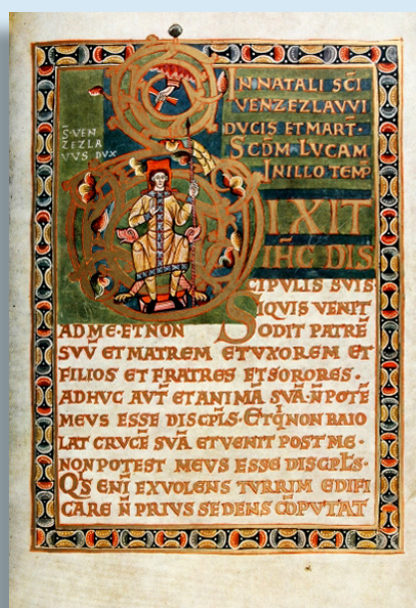 IN NATALI SCI
VENZEZLAVVI
DVCIS ET MART·
SCDM LVCAM
IN ILLO TEMP
S·VEN
ZEZLA
VVS DVX
DIXIT
IHC DIS
CIPVLIS SVIS
SIQVIS VENIT
AD ME·ET NON ODIT PATRĒ
SVV̄ ET MATREM ET VXOREM ET
FILIOS ET FRATRES ET SORORES·
ADHVC AVT̄ ET ANIMĀ SVĀ·N̄ POTĒ
MEVS ESSE DISCPLS·ET Q NON BAIO
LAT CRVCĒ SVĀ ET VENIT POST ME·
NON POTEST MEVS ESSE DISCPLS·
QS ENĪ EX VOLENS TVRRIM EDIFI
CARE N̄ PRIVS SEDENS CŌPVTAT